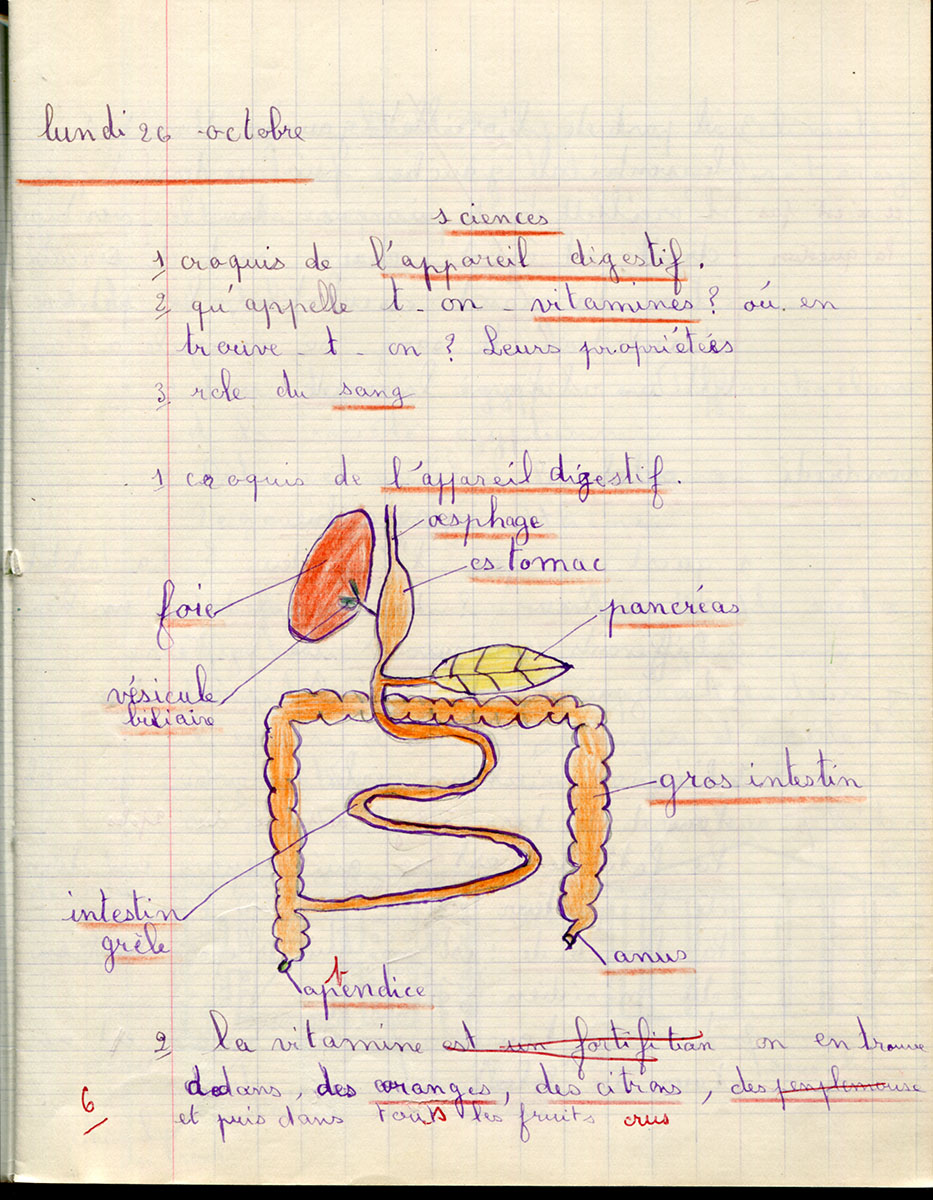 lundi 26 octobre
sciences
1 croquis de l'appareil digestif.
2 qu'appelle t-on-vitamines? où en
trouve-t-on? Leurs propriétés
3 role du sang
1 croquis de l'appareil digestif.
œsphage
estomac
foie
pancréas
vésicule
biliaire
gros intestin
intestin
grêle
anus
appendice
2 la vitamine est un fortifitian on en trouve
dedans, des oranges, des citrons, des
et puis dans touts les fruits crus
6